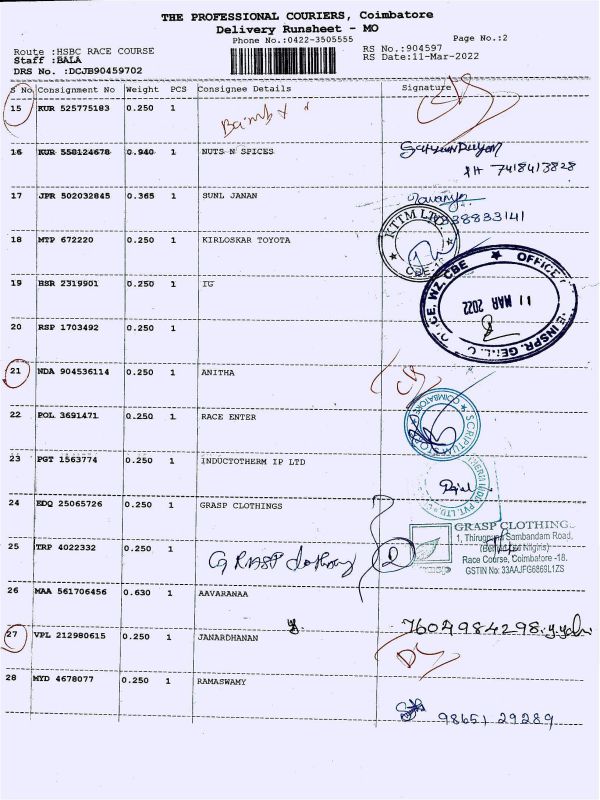 THE PROFESSIONAL COURIERS, Coimbatore
Delivery Runsheet - MO
Phone No.:0422-3505555
Page No.:2
Route :HSBC RACE COURSE
RS No.:904597
Staff :BALA
RS Date:11-Mar-2022
DRS No. :DCJB90459702
S No Consignment No Weight PCS Consignee Details Signature
15 KUR 525775183 0.250 1
16 KUR 558124678 0.940 1 NUTS N SPICES
PH 7418413828
17 JPR 502032845 0.365 1 SUNL JANAN
38833141
KTTM LTD.
CBE-18
18 MTP 672220 0.250 1 KIRLOSKAR TOYOTA
19 HSR 2319901 0.250 1 IG
WZ. CBE ★ OFFICE
11 MAR 2022
INSPR. GENL.
20 RSP 1703492 0.250 1
21 NDA 904536114 0.250 1 ANITHA
22 POL 3691471 0.250 1 RACE ENTER
COIMBATORE
23 PGT 1563774 0.250 1 INDUCTOTHERM IP LTD
INDIA PVT. LTD.
24 EDQ 25065726 0.250 1 GRASP CLOTHINGS
GRASP CLOTHINGS
1, Thirugnana Sambandam Road,
(Behind Nilgiris)
Race Course, Coimbatore -18.
GSTIN No: 33AAJFG6869L1ZS
25 TRP 4022332 0.250 1 GRASP clothing 2
26 MAA 561706456 0.630 1 AAVARANAA
7604984298
27 VPL 212980615 0.250 1 JANARDHANAN
28 MYD 4678077 0.250 1 RAMASWAMY
98651 29289